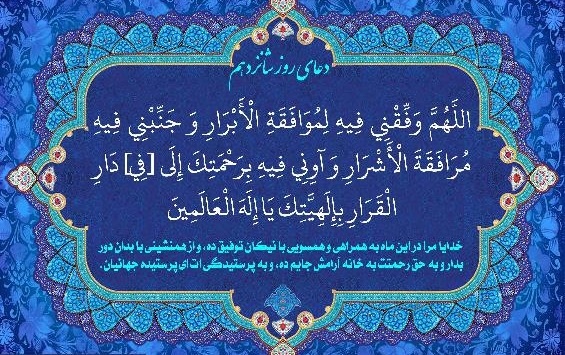 دعای روز شانزدهم
اللَّهُمَّ وَفِّقْنِي فِيهِ لِمُوَافَقَةِ الْأَبْرَارِ وَ جَنِّبْنِي فِيهِ
مُرَافَقَةَ الْأَشْرَارِ وَ آوِنِي فِيهِ بِرَحْمَتِكَ إِلَى [فِي] دَارِ
الْقَرَارِ بِإِلَهِيَّتِكَ يَا إِلَهَ الْعَالَمِينَ
خدایا مرا در این ماه به همراهی و همسویی با نیکان توفیق ده، و از همنشینی با بدان دور
بدار و به حق رحمتت به خانه آرامش جایم ده، و به پرستیدگی ات ای پرستیده جهانیان.